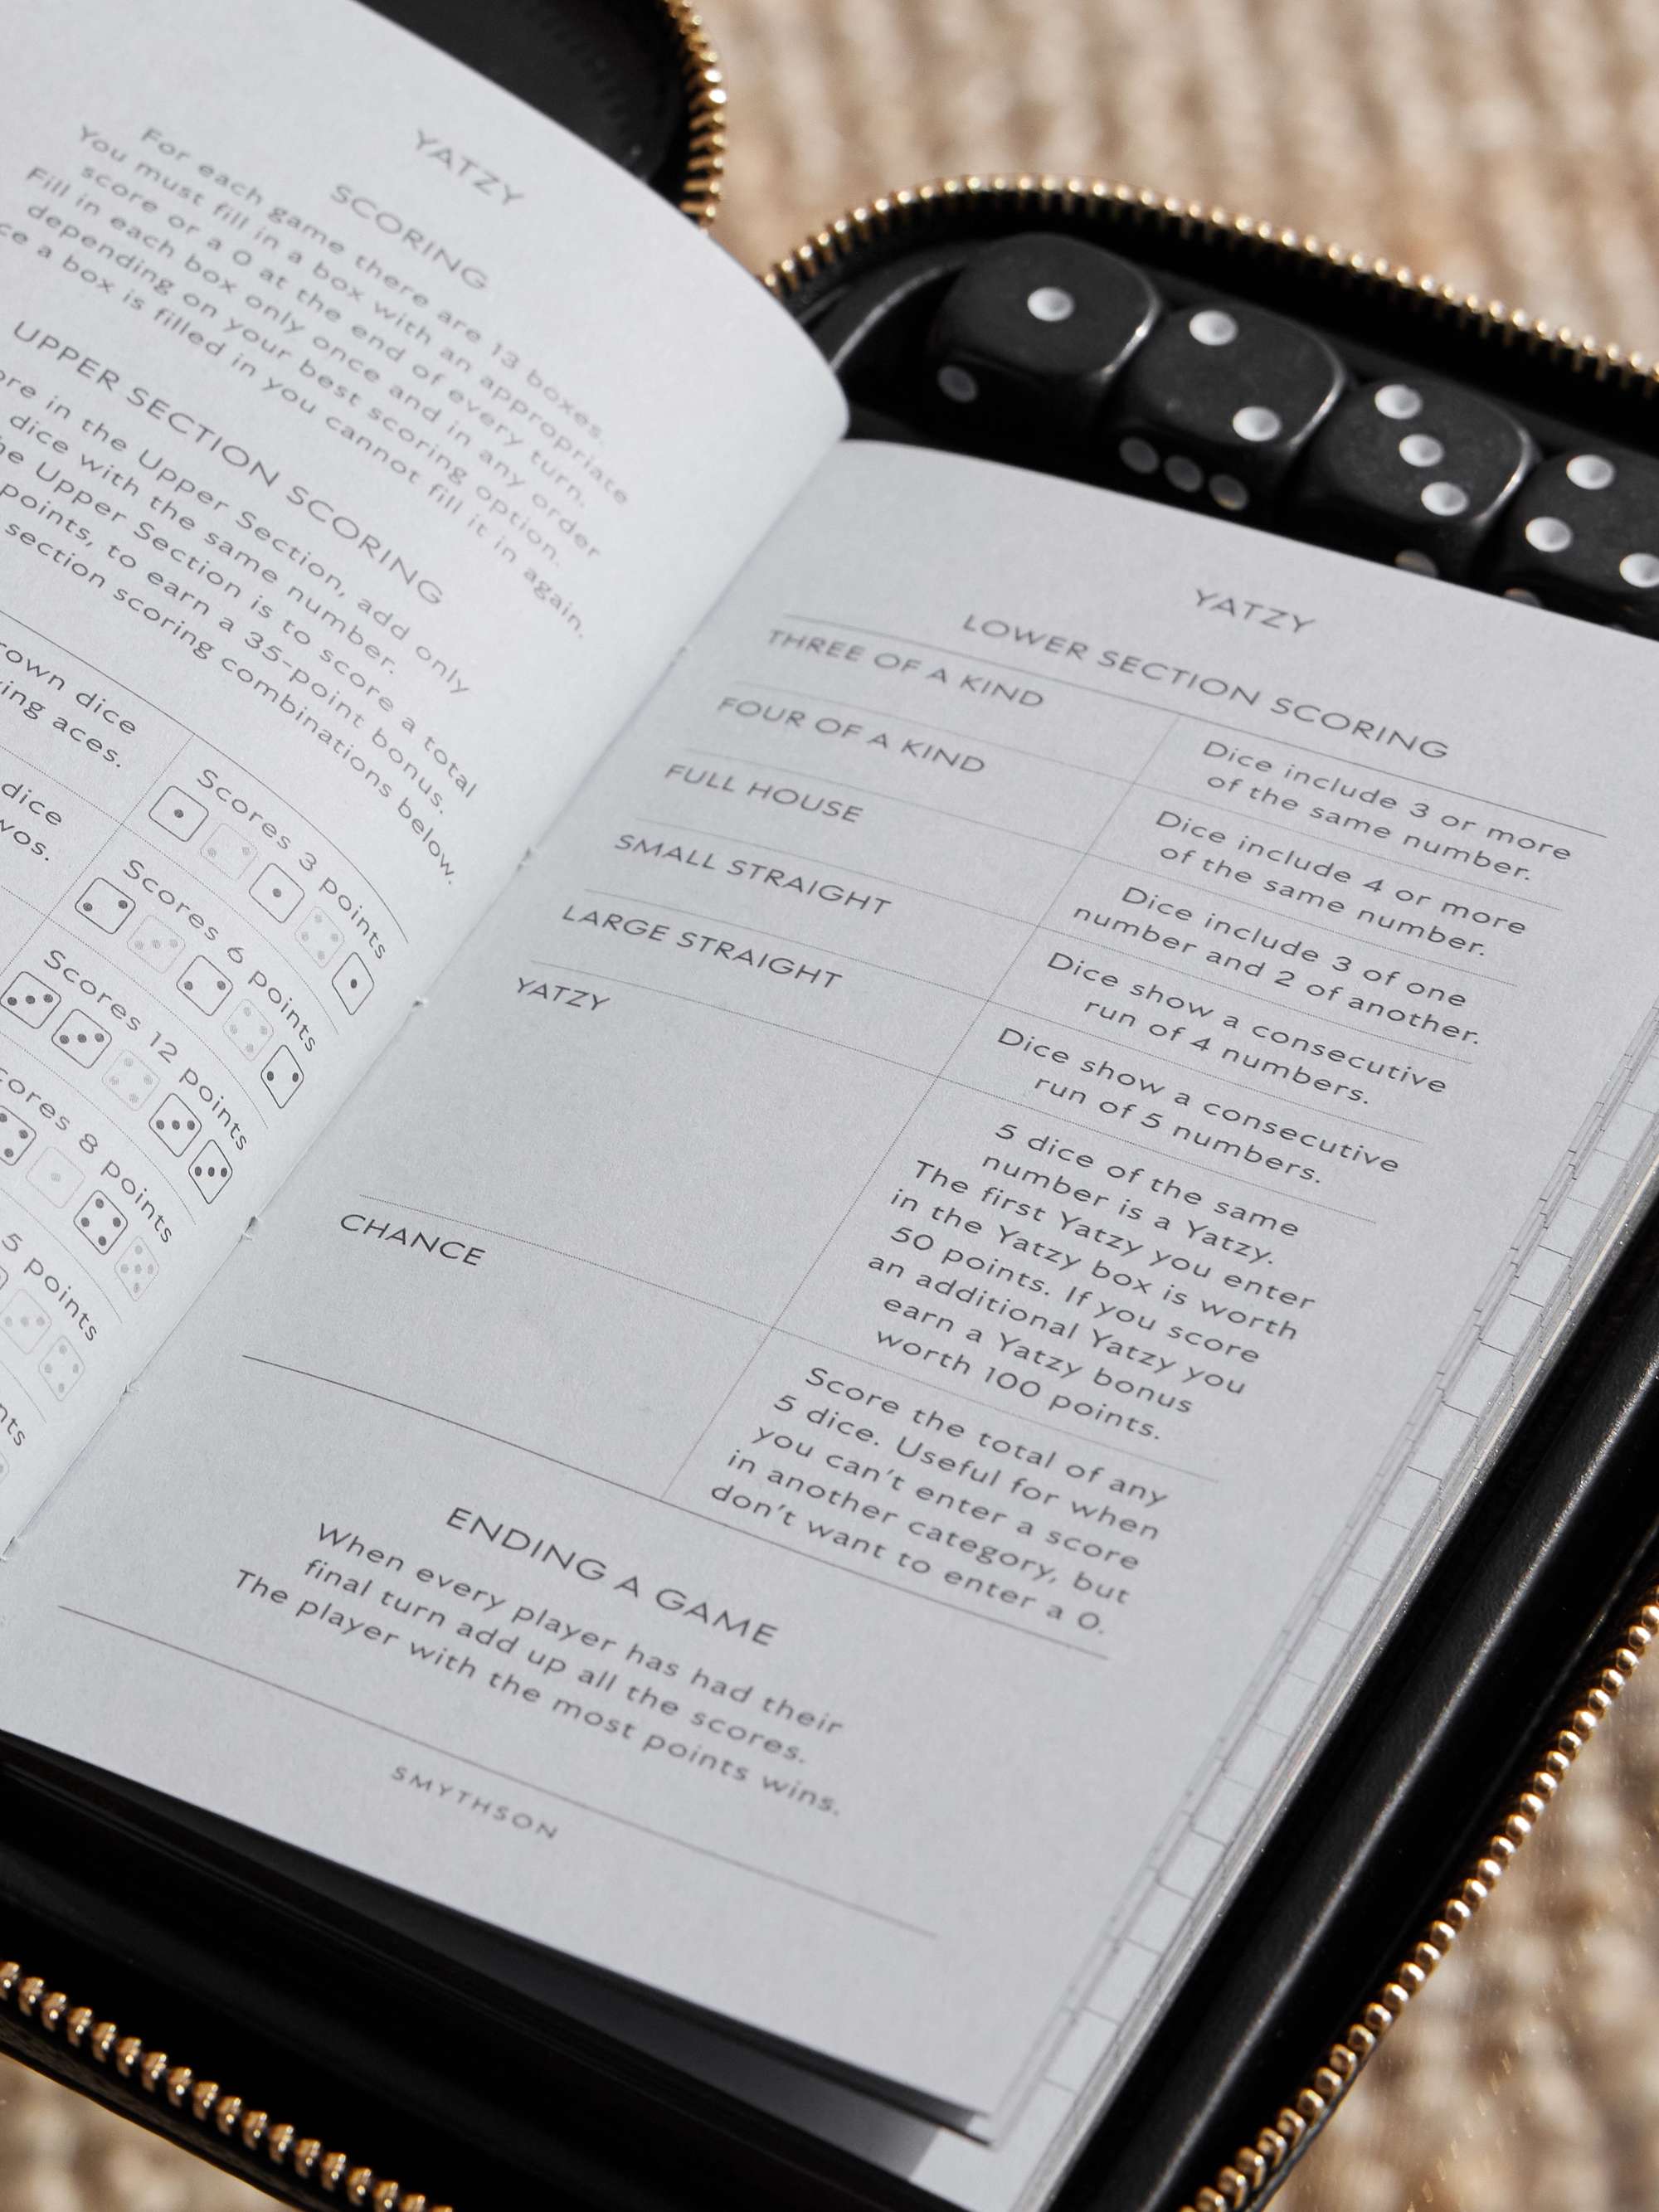 YATZY
SCORING
For each game there are 13 boxes.
You must fill in a box with an appropriate
score or a 0 at the end of every turn.
Fill in each box only once and in any order
depending on your best scoring option.
a box is filled in you cannot fill it in again.
UPPER SECTION SCORING
in the Upper Section, add only
dice with the same number.
Upper Section is to score a total
points, to earn a 35-point bonus.
section scoring combinations below.
dice
aces.
Scores 3 points
dice
Scores 6 points
Scores 12 points
8 points
5 points
YATZY
LOWER SECTION SCORING
THREE OF A KIND
Dice include 3 or more
of the same number.
FOUR OF A KIND
Dice include 4 or more
of the same number.
FULL HOUSE
Dice include 3 of one
number and 2 of another.
SMALL STRAIGHT
Dice show a consecutive
run of 4 numbers.
LARGE STRAIGHT
Dice show a consecutive
run of 5 numbers.
YATZY
5 dice of the same
number is a Yatzy.
The first Yatzy you enter
in the Yatzy box is worth
50 points. If you score
an additional Yatzy you
earn a Yatzy bonus
worth 100 points.
CHANCE
Score the total of any
5 dice. Useful for when
you can't enter a score
in another category, but
don't want to enter a 0.
ENDING A GAME
When every player has had their
final turn add up all the scores.
The player with the most points wins.
SMYTHSON